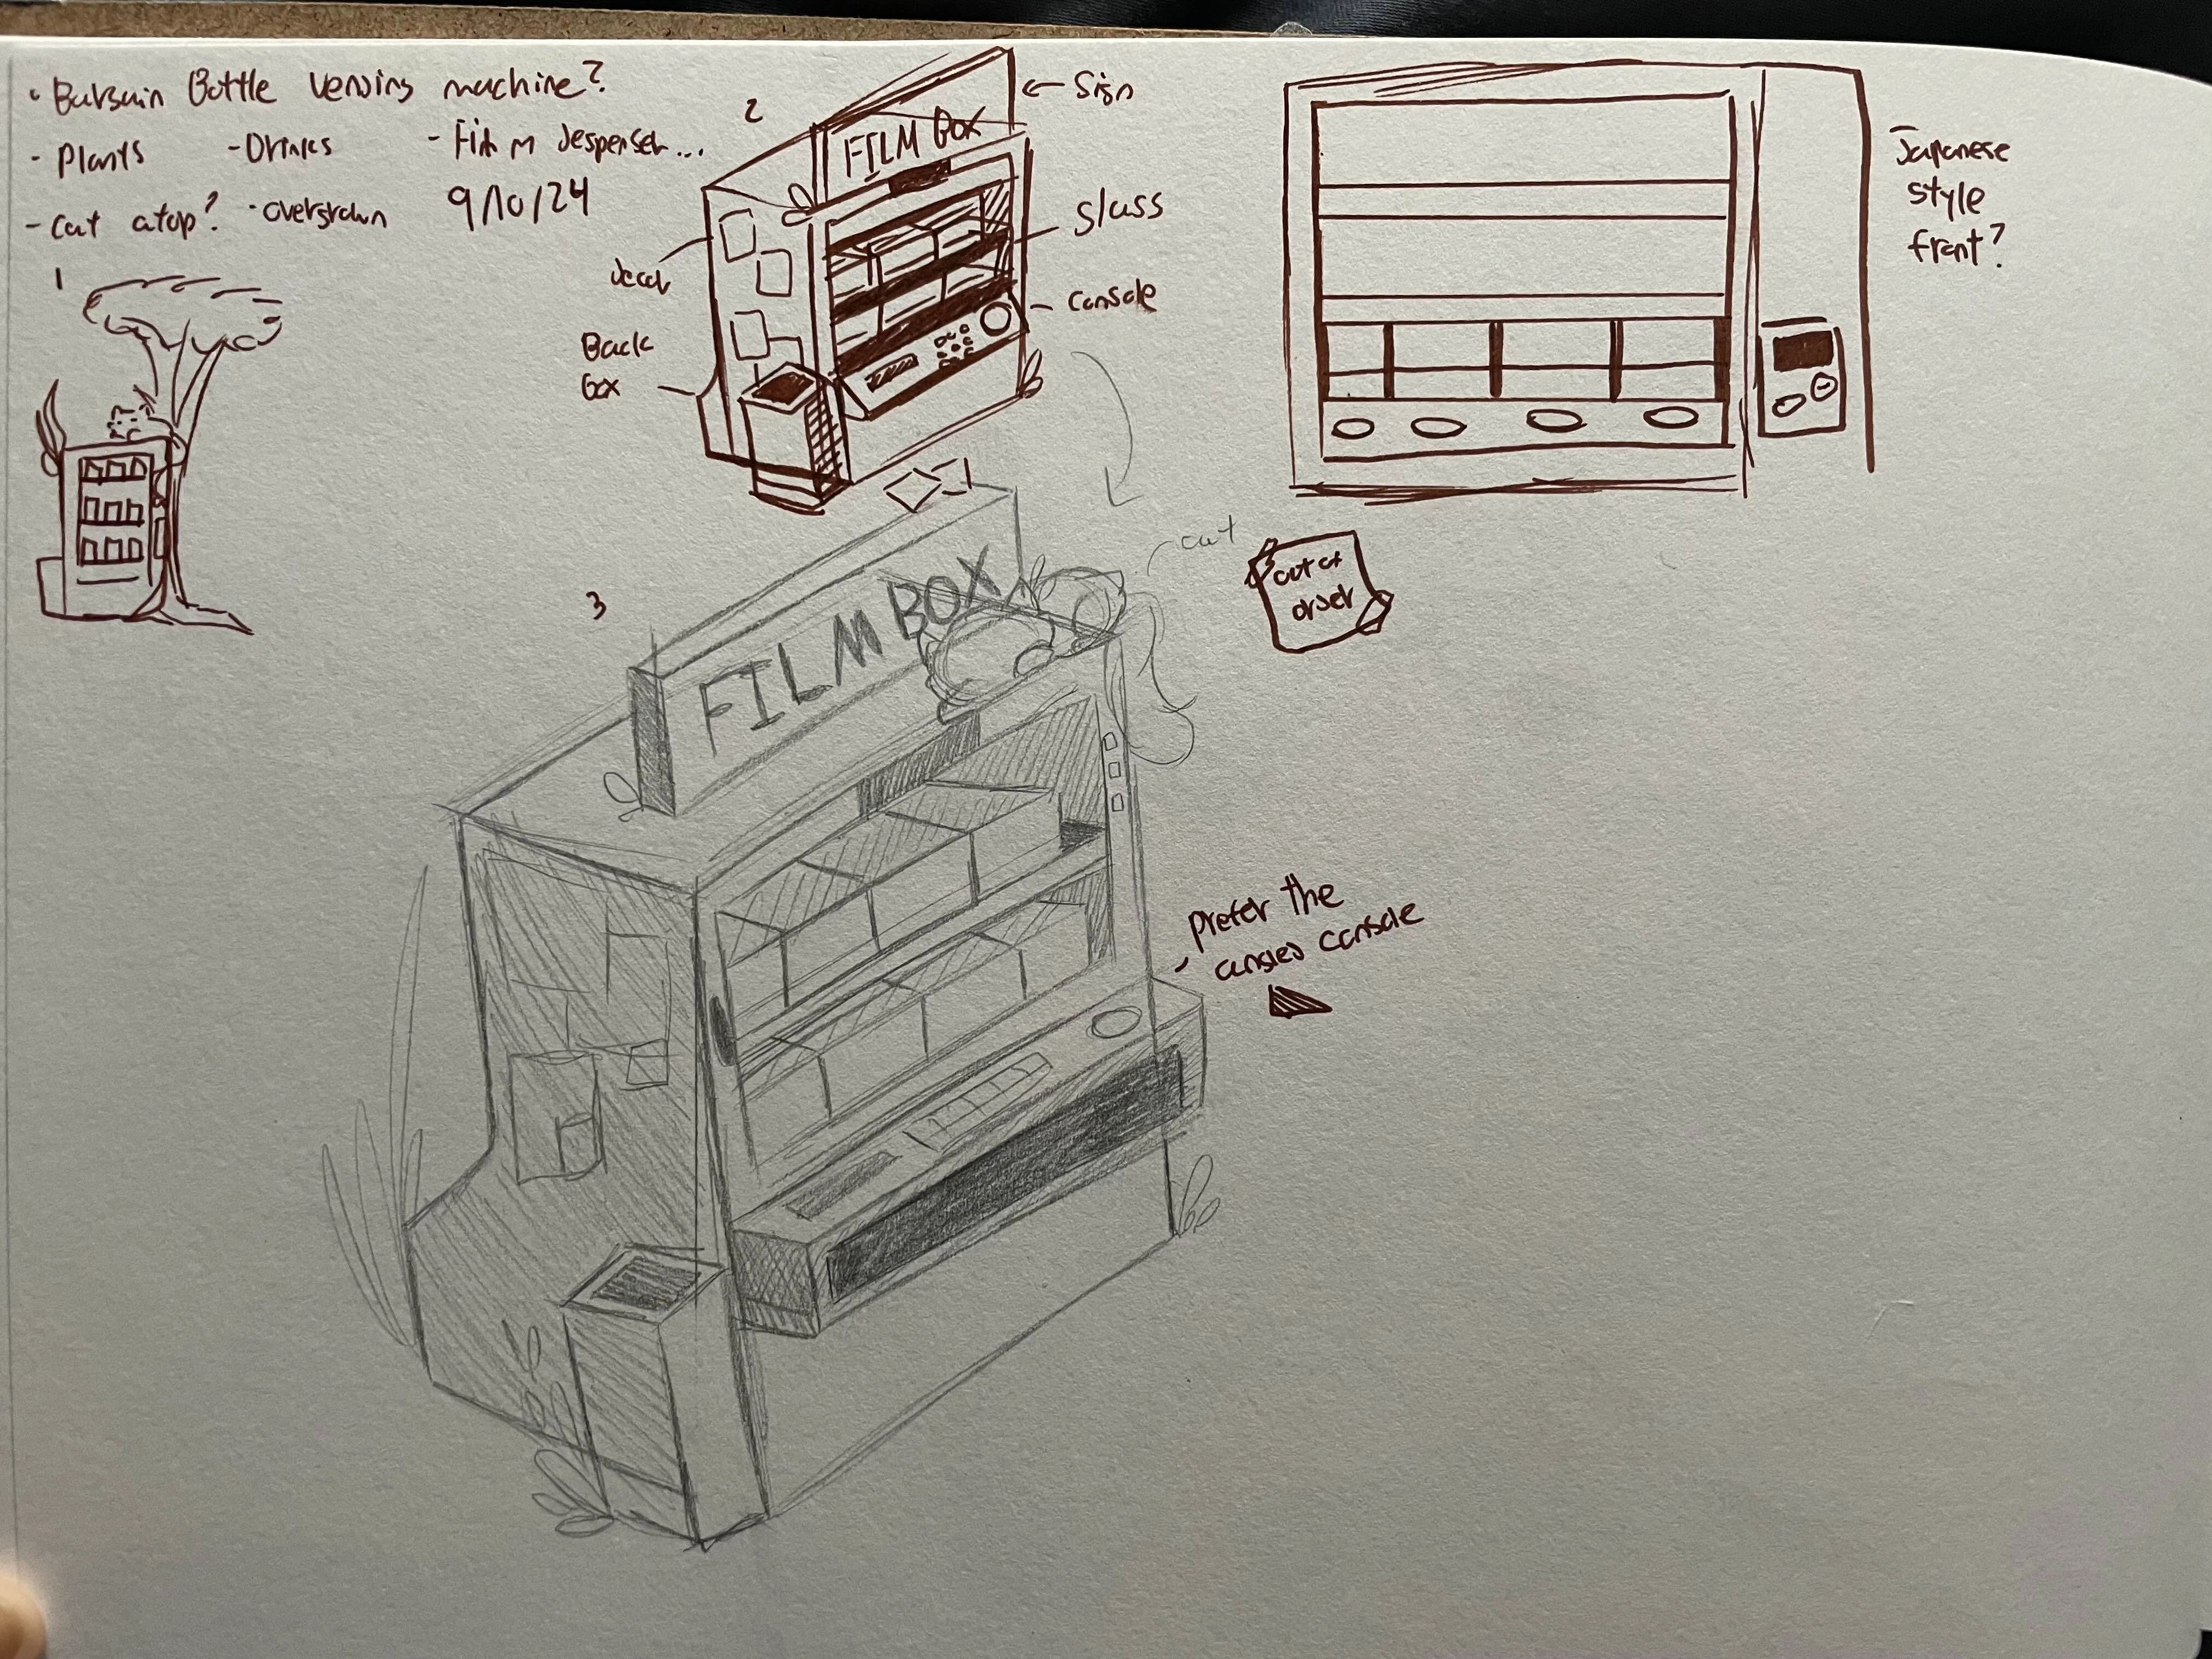 • Bargain Bottle vending machine?
- Plants - Drinks - Film despenser...
- cat atop? - overgrown 9/10/24
1
2
FILM BOX
← Sign
glass
console
decal
Back
Box
Japanese
style
front?
3
FILM BOX
cat
out of
order
- prefer the
angled console